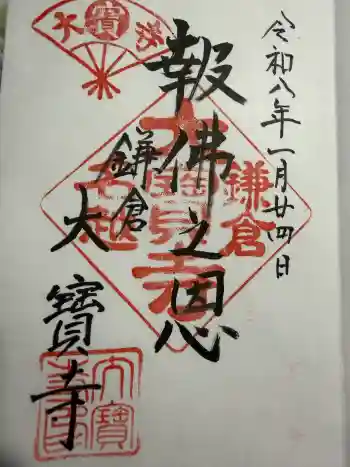 令和八年一月廿四日
報佛之恩
鎌倉
大寶寺
鎌倉
大寶寺
名越